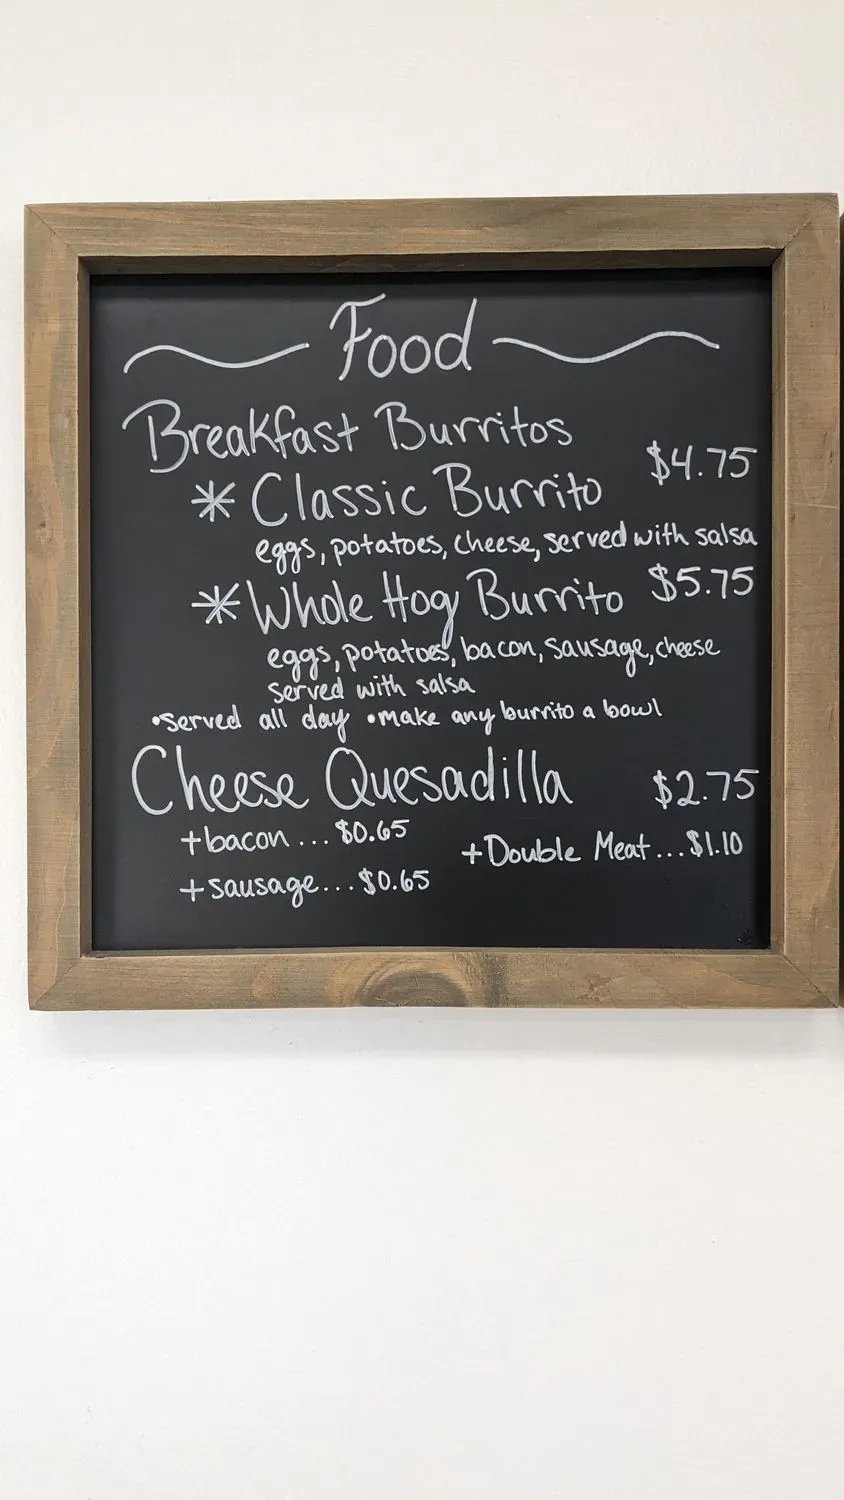 Food
Breakfast Burritos
* Classic Burrito $4.75
eggs, potatoes, cheese, served with salsa
* Whole Hog Burrito $5.75
eggs, potatoes, bacon, sausage, cheese
served with salsa
•served all day •make any burrito a bowl
Cheese Quesadilla $2.75
+bacon...$0.65
+Double Meat...$1.10
+sausage...$0.65